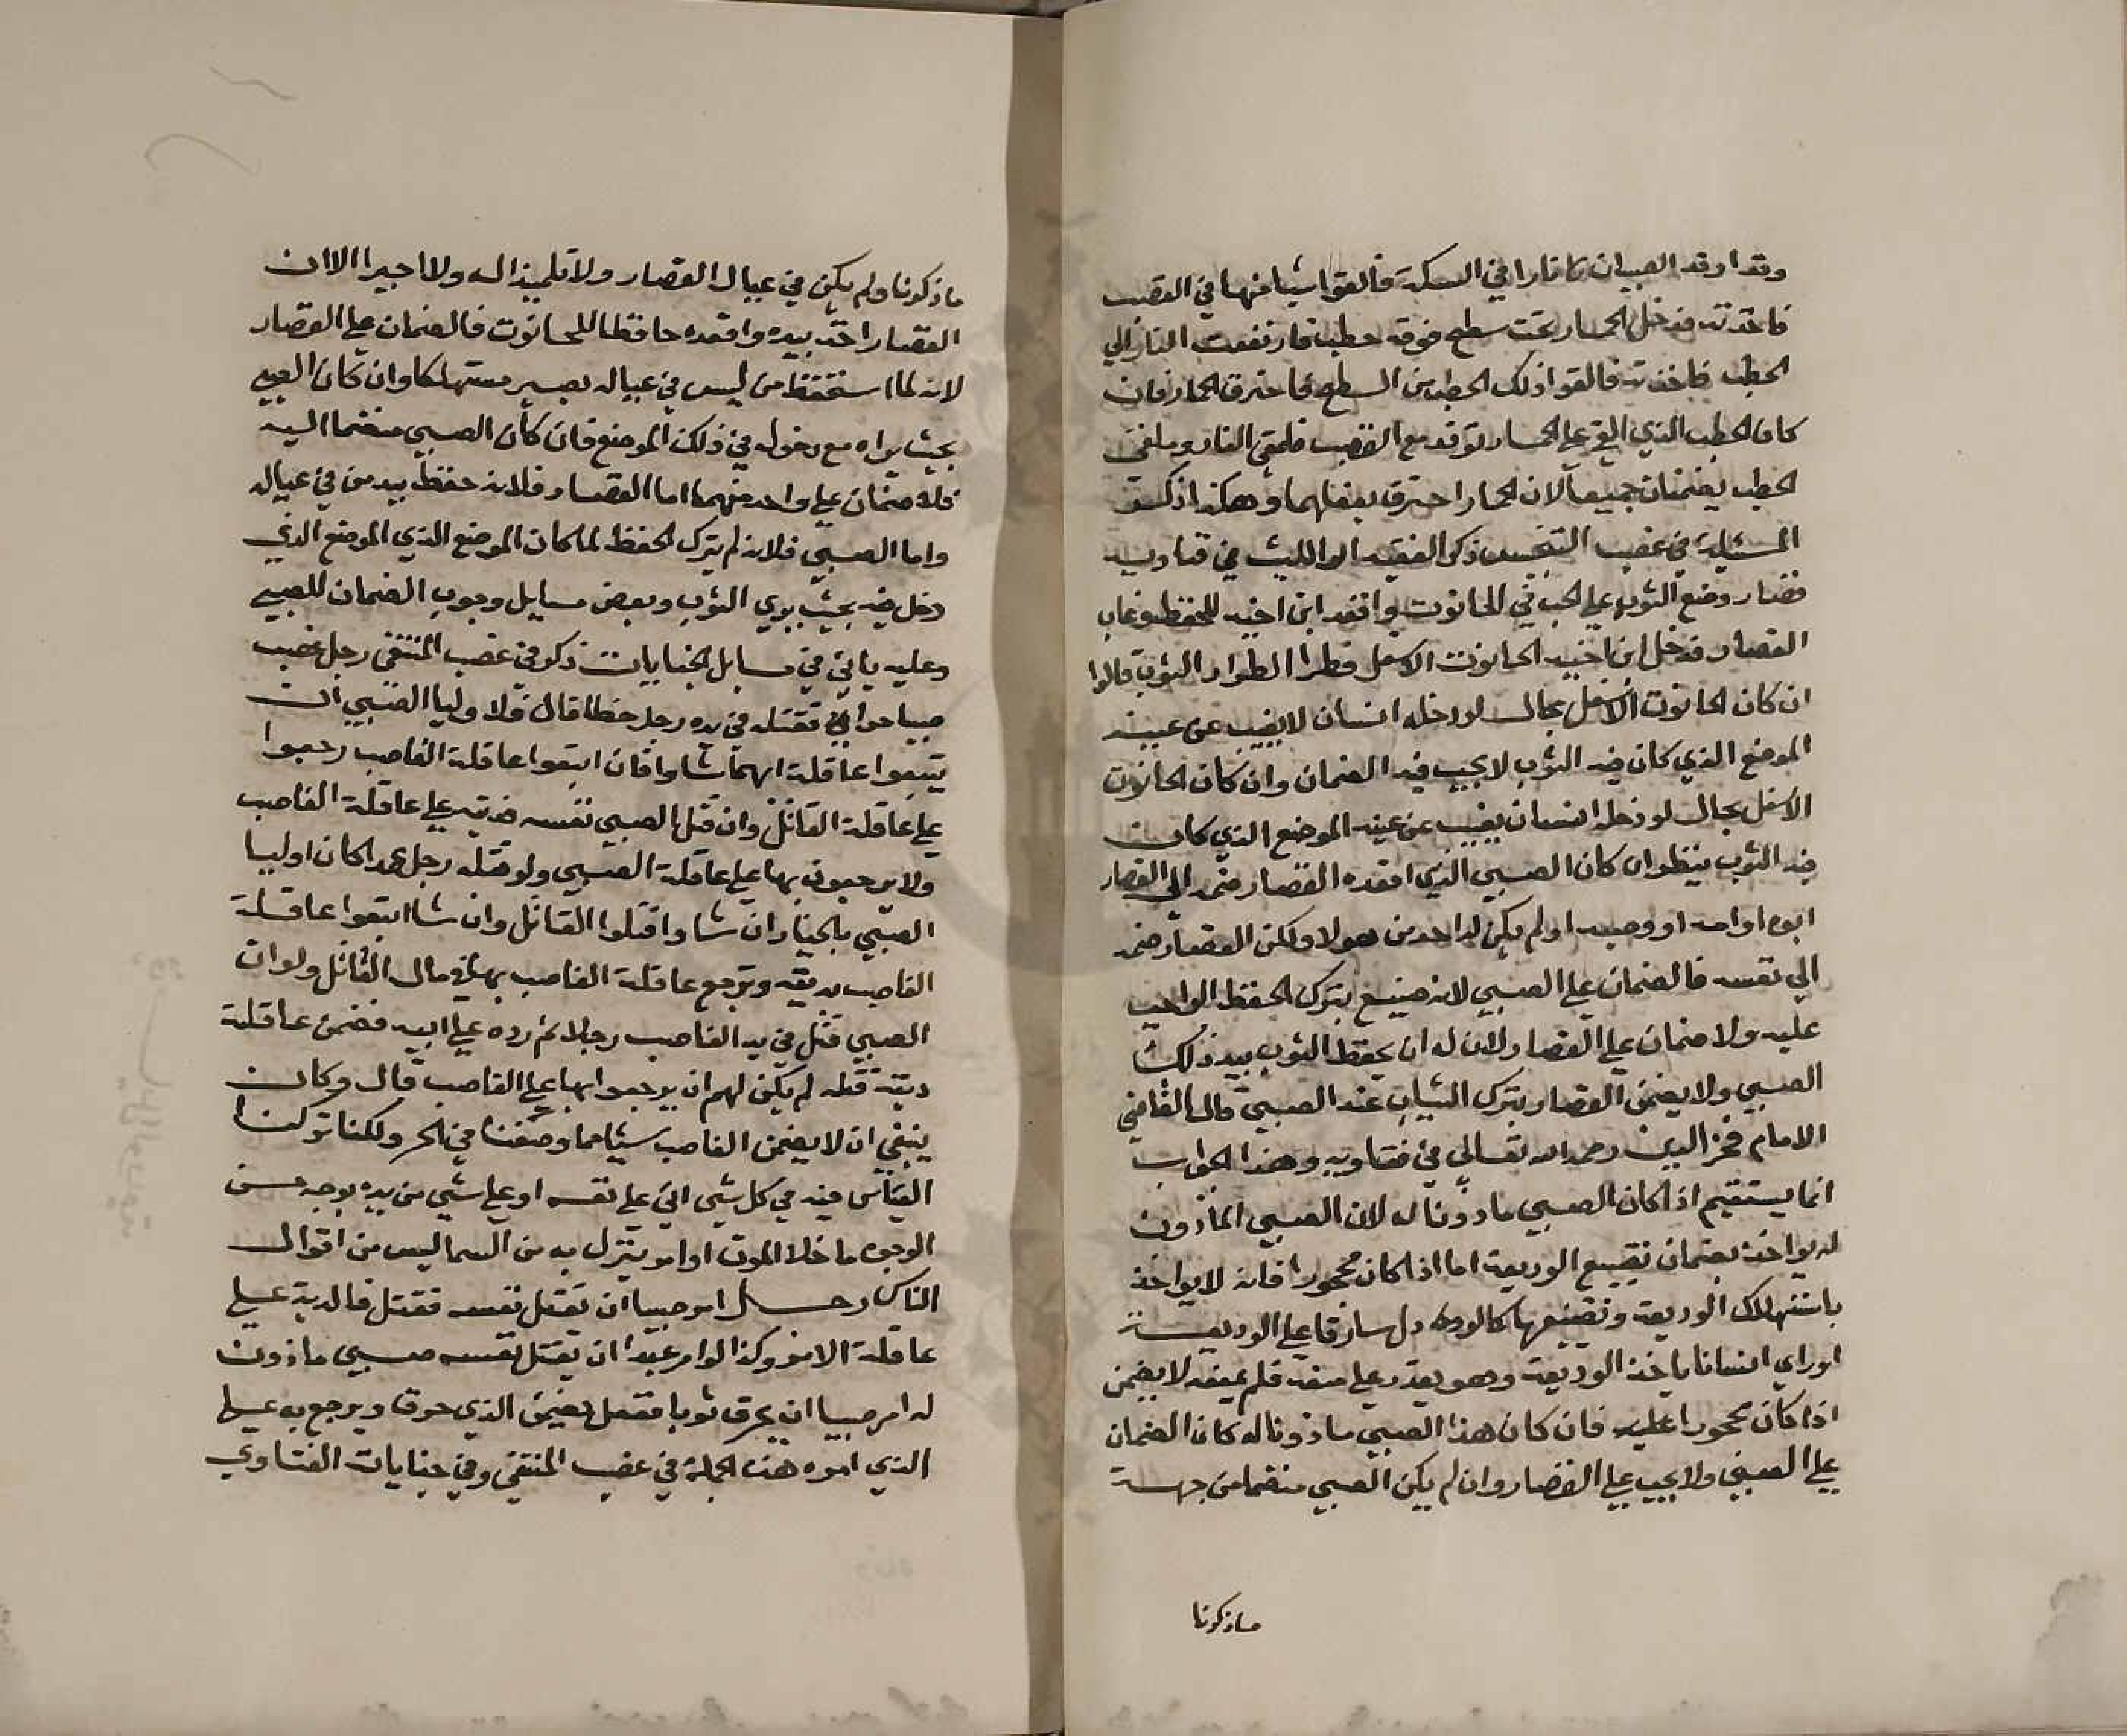 وقد اوقد الصبيان نارا في السكة فالقوا شيا منها في القصب
فاخذته فدخل الحمار تحت سطح فوقه حطب فارتفعت النار الي
الحطب فاخذته فالقوا ذلك الحطب من السطح فاحترق الحمار فان
كان الحطب الذي القي علي الحمار توقد مع القصب فملقي النار وملقي
الحطب يضمنان جميعا لان الحمار احترق بفعلهما وهكذا ذكر
المسئلة في غصب التجنيس ذكر الفقيه ابو الليث في فتاويه
قصار وضع الثوب علي الحب في الحانوت واقعد ابن اخيه للحفظ وغاب
القصار فدخل ابن اخيه الحانوت الاسفل فطر الطرار الثوب قالوا
ان كان الحانوت الاسفل بحال لو دخله انسان لا يغيب عن عينه
الموضع الذي كان فيه الثوب لا يجب فيه الضمان وان كان الحانوت
الاسفل بحال لو دخله انسان يغيب عن عينه الموضع الذي كان
فيه الثوب ينظر ان كان الصبي الذي اقعده القصار ضمه الي القصار
ابوه او امه او وصيه او لم يكن له احد من هولا ولكن القصار ضمه
الي نفسه فالضمان علي الصبي لانه ضيع بترك الحفظ الواجب
عليه ولا ضمان علي القصار لان له ان يحفظ الثوب بيد ذلك
الصبي ولا يضمن القصار بترك الثياب عند الصبي قال القاضي
الامام فخر الدين رحمه الله تعالي في فتاويه وهذا الجواب
انما يستقيم اذا كان الصبي ماذونا له لان الصبي الماذون
له يواخذ بضمان تضييع الوديعة اما اذا كان محجورا فانه لا يواخذ
باستهلاك الوديعة وتضييعها كالوديعة دل سارقا علي الوديعة
او راي انسانا ياخذ الوديعة وهو يقدر علي منعه فلم يمنعه لا يضمن
اذا كان محجورا عليه فان كان هذا الصبي ماذونا له كان الضمان
علي الصبي ولا يجب علي القصار وان لم يكن الصبي منضما من جهة
ماذكرنا
ما ذكرنا ولم يكن في عيال القصار ولا تلميذا له ولا اجيرا الا ان
القصار اخذ بيده واقعده حافظا للحانوت فالضمان علي القصار
لانه لما استحفظ من ليس في عياله يصير مستهلكا وان كان الصبي
بحيث يراه مع دخوله في ذلك الموضع فان كان الصبي منضما اليه
فلا ضمان علي واحد منهما اما القصار فلانه حفظ بيد من في عياله
واما الصبي فلانه لم يترك الحفظ لما كان الموضع الذي الموضع الذي
دخل فيه بحيث يري الثوب وبعض مسايل وجوب الضمان للصبي
وعليه ياتي في مسايل الجنايات ذكر في غصب المنتقي رجل غصب
صبيا حرا فقتله في يده رجل خطا قال فلاوليا الصبي ان
يتبعوا عاقلة ايهما شاوا فان اتبعوا عاقلة الغاصب رجعوا
علي عاقلة القاتل وان قتل الصبي نفسه فديته علي عاقلة الغاصب
ولا يرجعون بها علي عاقلة الصبي ولو قتله رجل عمدا كان اوليا
الصبي بالخيار ان شاوا قتلوا القاتل وان شا اتبعوا عاقلة
الغاصب بديته وترجع عاقلة الغاصب بها في مال القاتل ولو ان
الصبي قتل في يد الغاصب رجلا ثم رده علي ابيه فضمن عاقلة
دية قتله لم يكن لهم ان يرجعوا بها علي الغاصب قال وكان
ينبغي ان لا يضمن الغاصب شيئا مما وصفنا في الحر ولكنا تركنا
القياس فيه في كل شي اتي علي نفسه او علي شي من يديه بوجه من
الوجوه ما خلا الموت او امر ينزل به من السما ليس من اقوال
الناس رجل امر صبيا ان يقتل نفسه فقتل فالدية علي
عاقلة الامر وكذا لو امر عبدا ان يقتل نفسه صبي ماذون
له امر صبيا ان يحرق ثوبا ففعل يضمن الذي حرق ويرجع به علي
الذي امره هذه الجملة في غصب المنتقي وفي جنايات الفتاوي